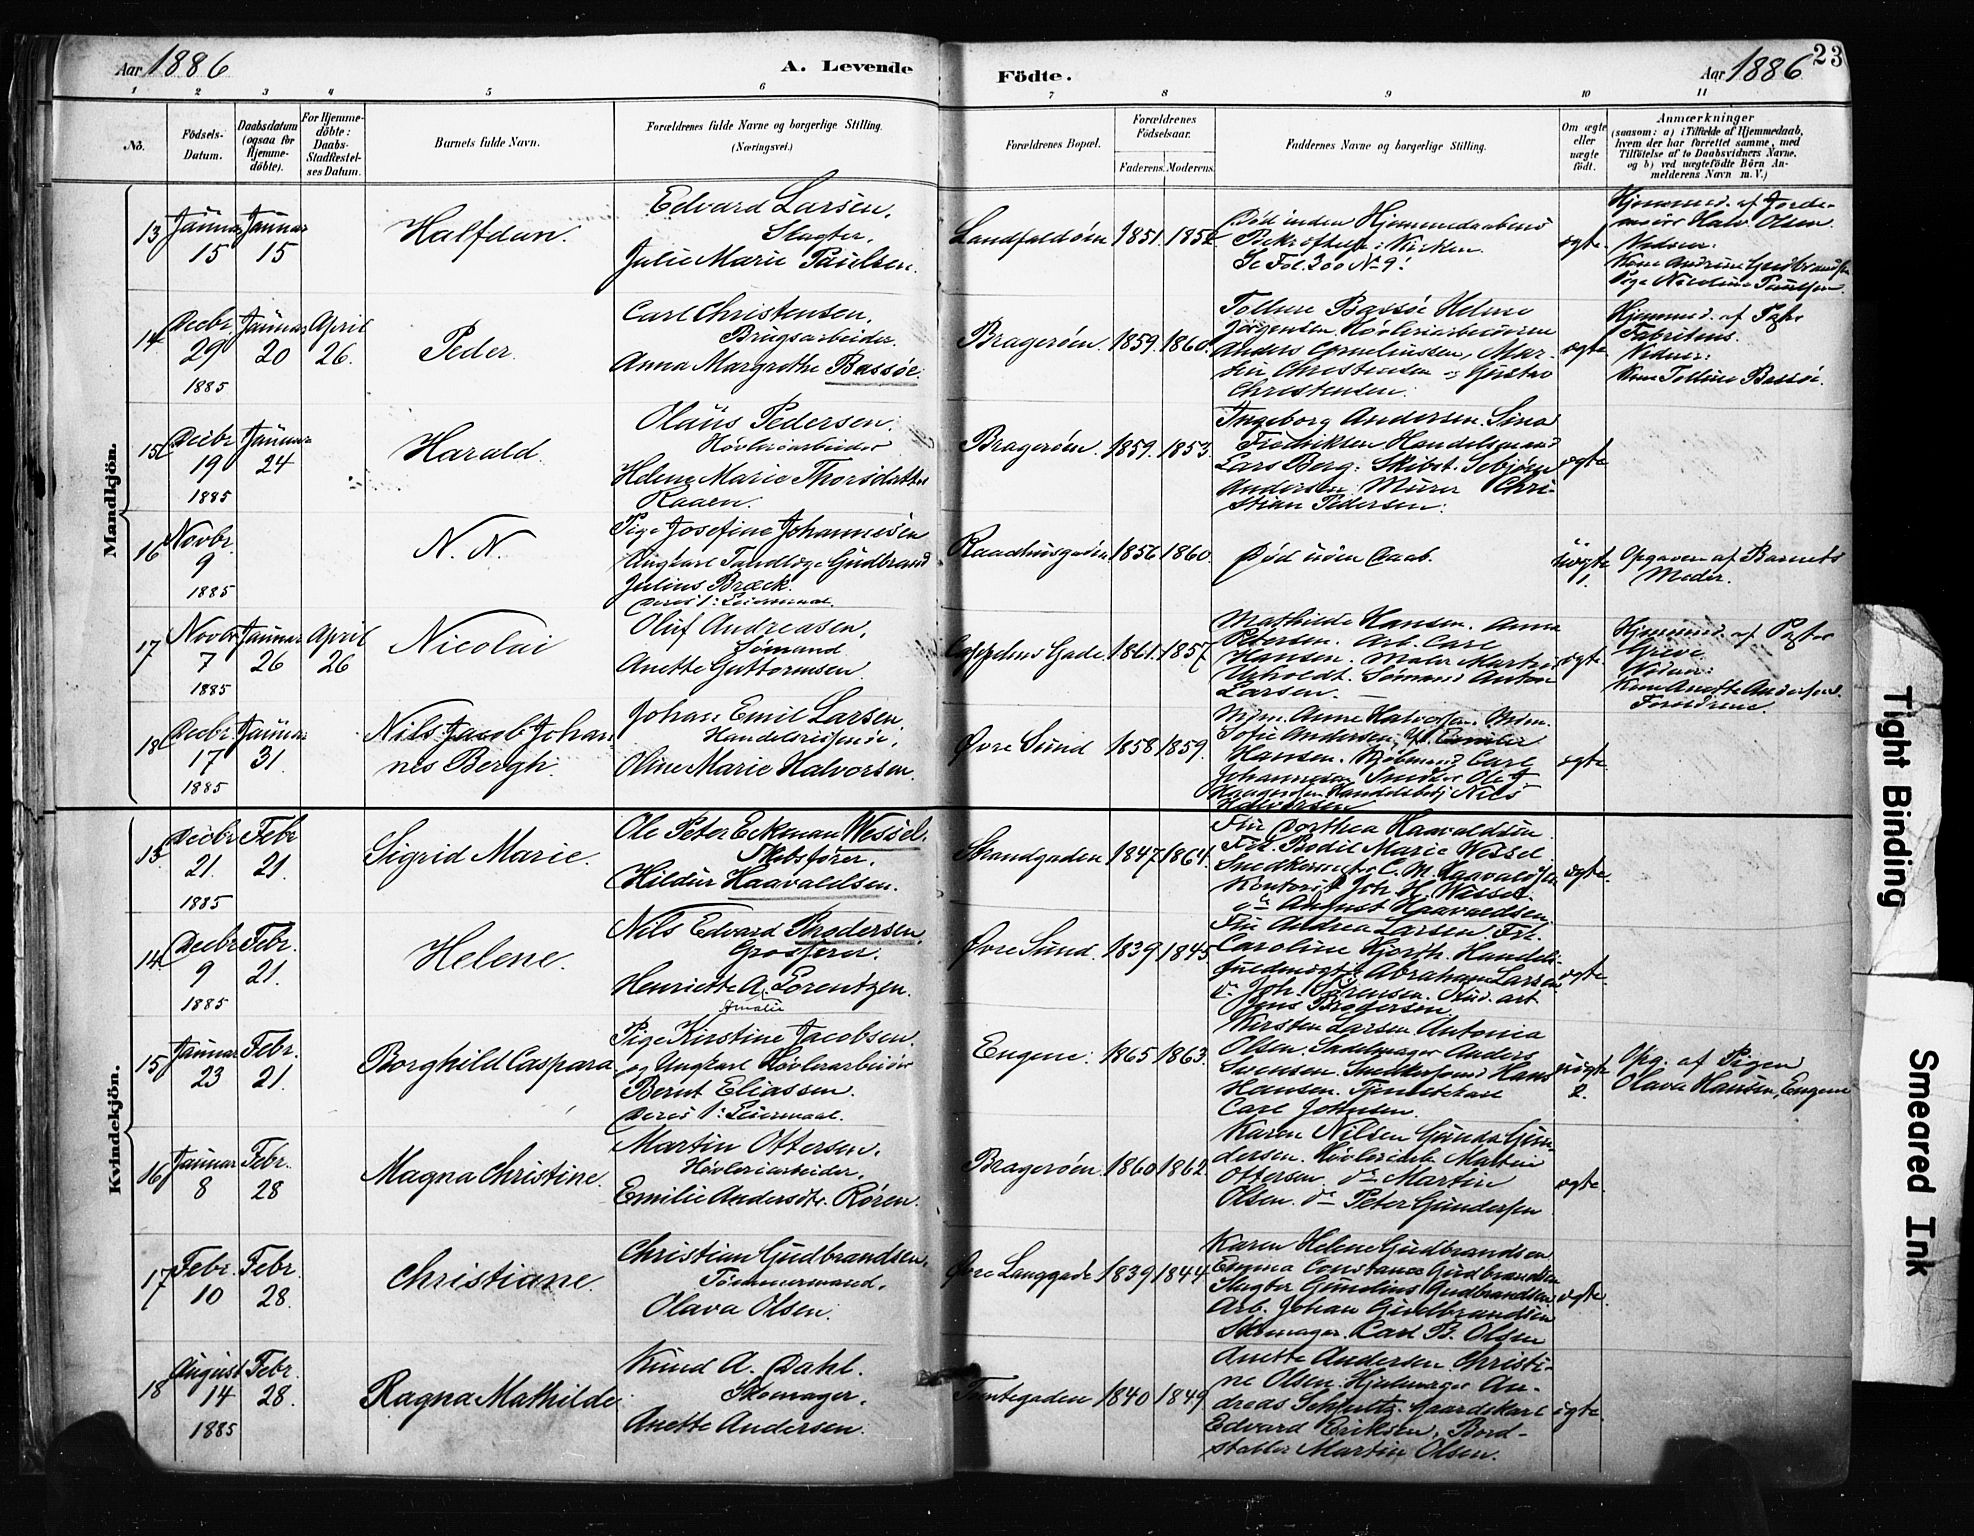 Aar 1886
A. Levende
Födte.
Aar 1886
23
1 2 3 4 5 6 7 8 9 10 11
No.
Födsels-Datum.
Daabsdatum (ogsaa for Hjemme-döbte).
For Hjemme-döbte: Daabs-Stadfæstel-ses Datum.
Barnets fulde Navn.
Forældrenes fulde Navne og borgerlige Stilling.
(Næringsvei.)
Forældrenes Bopæl.
Forældrenes Födselsaar.
Faderens. Moderens.
Faddernes Navne og borgerlige Stilling.
Om ægte eller uægte födt.
Anmærkninger
(saasom: a) i Tilfælde af Hjemmedaab,
hvem der har forrettet samme, med
Tilföielse af to Daabsvidners Navne,
og b) ved uægtefödte Börn An-
melderens Navn m. V.)
Mandkjön.
13 Januar 15 Januar 15
Halfdan.
Edvard Larsen.
Slagter.
Julie Marie Paulsen.
Landfaldöen 1851. 1852
Död inden Hjemmedaabens
Bekræftelse i Kirken.
Se Fol. 300 No 9.
ægte.
Hjemmed. af Jorde-
moder Halv. Olsen.
Vidner:
Kone Andrine Gudbrandsen
Pige Nicoline Paulsen.
14 Decbr. 29 1885 Januar 20 April 26.
Peder.
Carl Christensen.
Brugsarbeider.
Anna Margrethe Bassöe.
Brageröen. 1859. 1860.
Tolline Bassöe Helene
Jörgensen. Hövleriarbeideren
Anders Corneliussen, Mar-
tin Christensen og Gustav
Christensen.
ægte
Hjemmed. af Pastor
Fabritius.
Vidner:
Kone Tolline Bassöe.
15 Decbr. 19 1885 Januar 24
Harald.
Olaus Pedersen.
Hövleriarbeider
Helene Marie Thorsdatter
Raaen.
Brageröen. 1859. 1853.
Ingeborg Andersen. Sina
Fredriksen. Handelsmand
Lars Berg. Skibst. Sebjörn
Andersen. Murer Chri-
stian Pedersen.
ægte
16 Novbr. 9 1885
N. N.
Pige Josefine Johannesen
Ungkarl Tandlæge Gudbrand
Julius Bræck.
Deres 1: Leiermaal.
Raadhusgaden 1856 1860.
Död uden Daab.
uægte 1.
Opgaven af Barnets
Moder.
17 Novbr 7 1885 Januar 26 April 26
Nicolai
Oluf Andreasen.
Sömand
Anette Guttormsen
Cappelens Gade. 1861. 1857
Mathilde Hansen. Anna
Petersen. Arb. Carl
Hansen. Maler Martin
Urholdt. Sömand Anton
Larsen.
ægte.
Hjemmed. af Pastor
Greve
Vidner:
Kone Anette Andersen
Forældrene.
18 Decbr 17 1885 Januar 31.
Nils Jacob Johan
nes Bergh.
Johan Emil Larsen
Handelsreisende.
Oline Marie Halvorsen.
Övre Sund 1858 1859.
Mdm. Anne Halvorsen. Mdm.
Sofie Andersen,
Hansen. Kjöbmand Carl
Johannesen Snedker Ole J.
Haagensen Handelsbetj Nils
Halvorsen
ægte.
Kvindekjön.
13 Decbr 21. 1885 Febr 21.
Sigrid Marie.
Ole Peter Eckman Wessel.
Skibsförer.
Hildur Haavaldsen.
Strandgaden 1847. 1864.
Fru Dorthea Haavaldsen
Frk. Bodil Marie Wessel
Snedkermester C. M. Haavaldsen
Kontorist Joh. H. Wessel.
do August Haavaldsen.
ægte.
14 Decbr 9 1885 Febr. 21.
Helene.
Nils Edvard Brodersen.
Grosserer.
Henriette A. Lorentzen.
Amalie
Övre Sund. 1839 1845.
Fru Andrea Larsen. Frk.
Caroline Hjorth. Handels-
fuldmægtig Abraham Larsen
do Joh. Sörensen. Stud. art
Jens Brodersen
ægte.
15 Januar 23 Febr. 21.
Borghild Caspara
Pige Kirstine Jacobsen.
og Ungkarl Hövleriarbeider
Bernt Eliassen.
Deres 1: Leiermaal.
Engene. 1865 1863.
Kirsten Larsen. Antonia
Olsen. Sadelmager Anders
Svensen. Snedkersvend Hans
Hansen. Tjenestekarl
Carl Johnsen.
uægte 2.
Opg. af Pigen
Olava Hansen, Engene
16 Januar 8 Febr. 28
Magna Christine.
Martin Ottersen.
Hövleriarbeider.
Emilie Andersdtr. Rören.
Brageröen. 1860 1862.
Karen Nilsen Gunda Gun-
dersen. Hövleriarb. Martin
Ottersen. do Martin
Olsen. do Peter Gundersen
ægte.
17 Febr. 10 Febr. 28.
Christiane.
Christian Gudbrandsen.
Tömmermand.
Olava Olsen.
Övre Langgade 1839 1844.
Karen Helene Gudbrandsen
Emma Constance Gudbrandsen
Slagter Gunelius Gudbrandsen
Arb. Johan Gudbrandsen
Skomager Carl B. Olsen
ægte.
18 August 14 1885 Febr. 28.
Ragna Mathilde
Knud A. Dahl.
Skomager.
Anette Andersen.
Tomtegaden 1840 1849
Anette Andersen. Christi-
ne Olsen. Hjulmager An-
dreas Schultz. Gaardskarl
Edvard Eriksen. Bord-
stabler Martin Olsen.
ægte.
Tight Binding
Smeared Ink